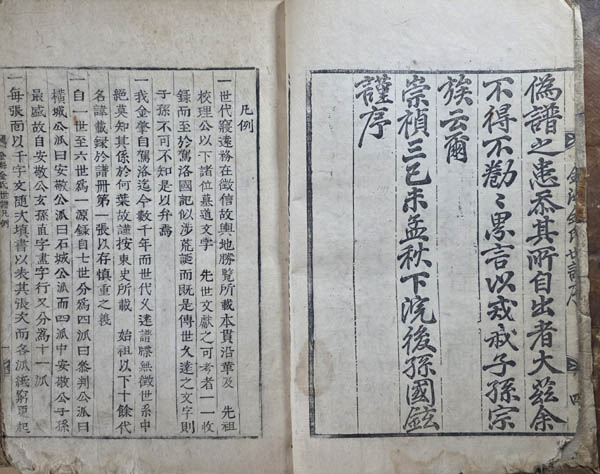 偽譜之患忝其所自出者大玆余
不得不勸〻愚言以戒戒子孫宗
族云爾
崇禎三己未孟秋下浣後孫國鉉
謹序
金海金氏世譜序
四
凡例
一世代寢遠務在徵信故輿地勝覧所載本貫沿革及 先祖
校理公以下諸位墓道文字 先世文獻之可考者一一收
錄而至於駕洛國記似涉荒誕而既是傳世久遠之文字則
子孫不可不知是以弁焉
一我金肇自駕洛迄今數千年而世代又遠譜牒無徵世系中
絶莫知其係於何葉故謹按東史所載 始祖以下十餘代
名諱載錄於譜冊第一張以存慎重之義
一自一世至六世爲一源錄自七世分爲四派曰叅判公派曰
橫城公派曰安敬公派曰石城公派而四派中安敬公子孫
最盛故自安敬公玄孫直字𦘕字行又分爲十一派
一每張面以千字文随大填書以表其張次而各派
金海金氏世譜凡例